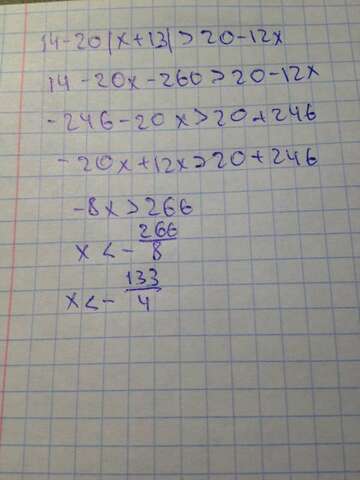 14-20(x+13)>20-12x
14-20x-260>20-12x
-246-20x>20+246
-20x+12x>20+246
-8x>266
x<-266/8
x<-133/4